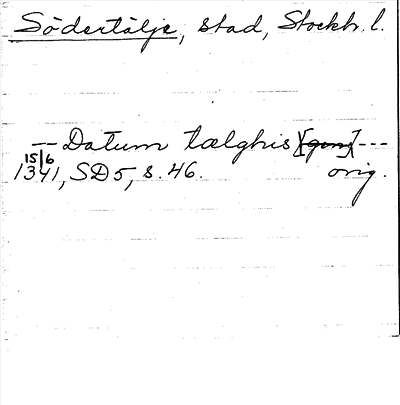 Södertälje, stad, Stockh. l.
-- Datum tælghis [gen.] ---
15/6
1341, SD 5, s. 46. orig.